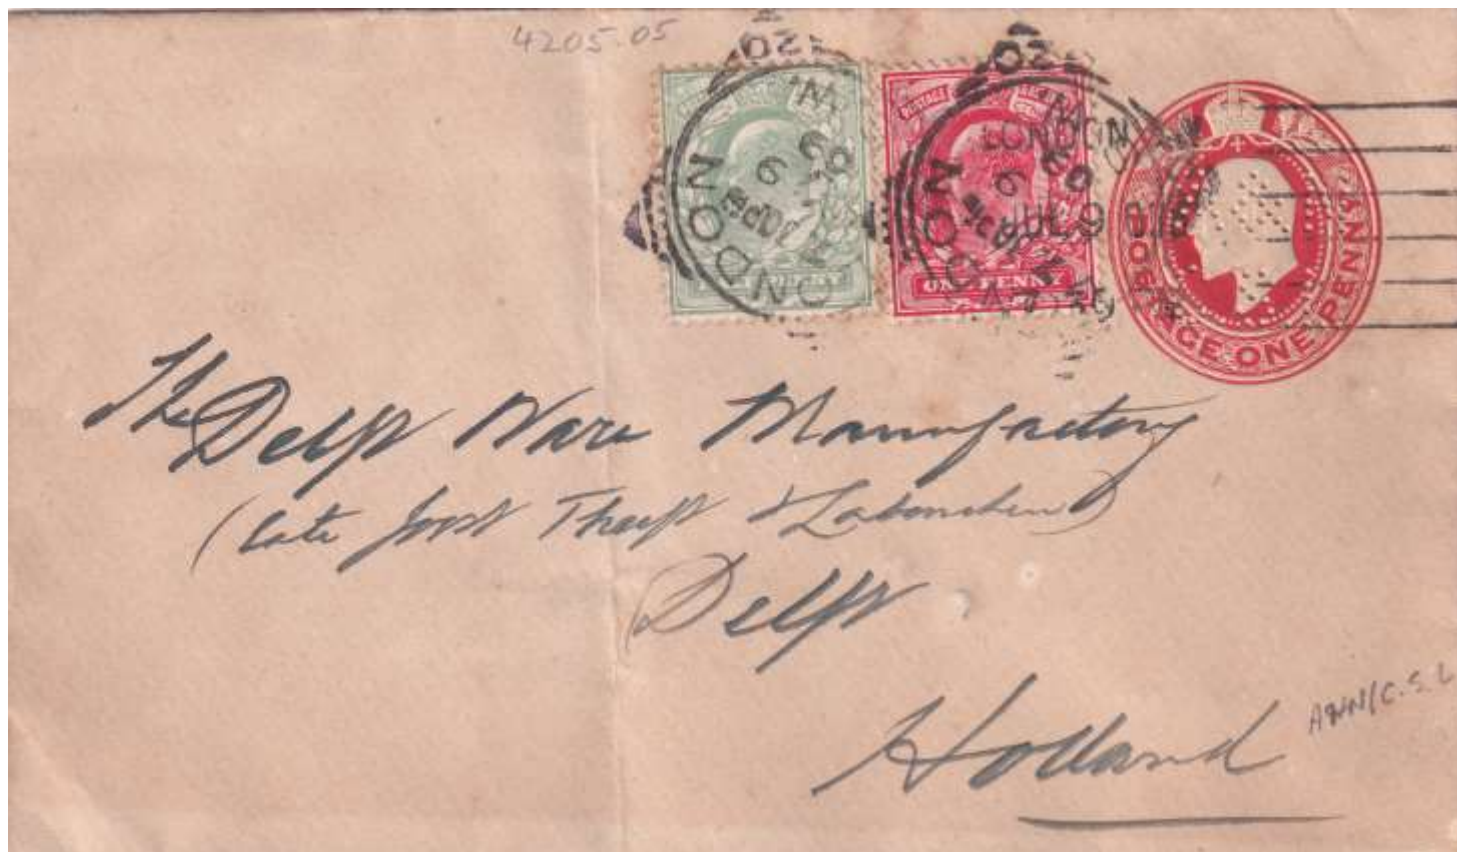 4205.05
20
20
W.
LONDON
JUL 9
09
09
LONDON
ONE PENNY
POSTAGE ONE PENNY
The Delft Ware Manufactory
(late Joost Thooft & Labouchere)
Delft
Holland